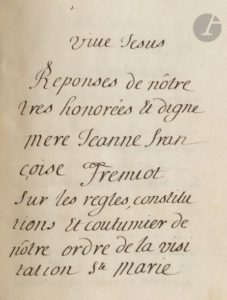 viue Jesus
Reponses de nôtre
tres honorées et digne
mere Jeanne fran
çoise Fremiot
sur les regles, constitu
tions et coutumier de
nôtre ordre de la visi
tation Ste Marie